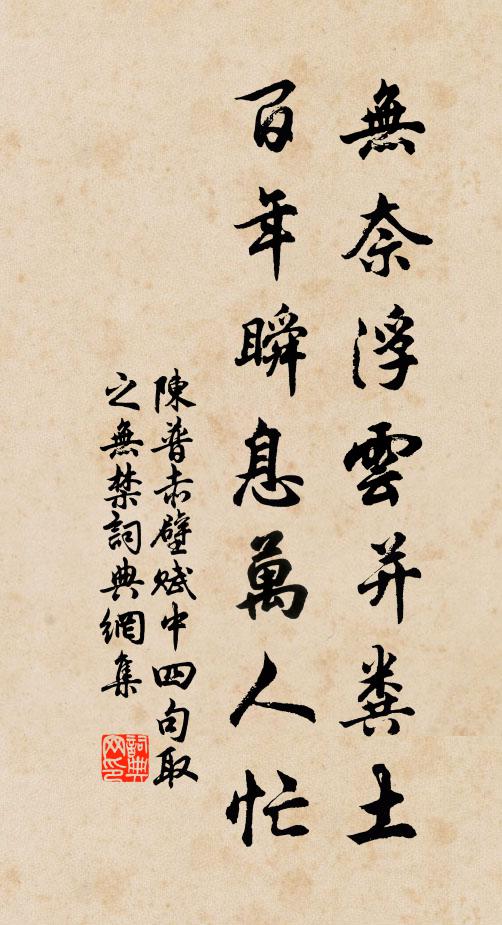 無奈浮雲并糞土
百年瞬息萬人忙
陳普赤壁賦中四句取
之無禁詞典網集
詞典
网印